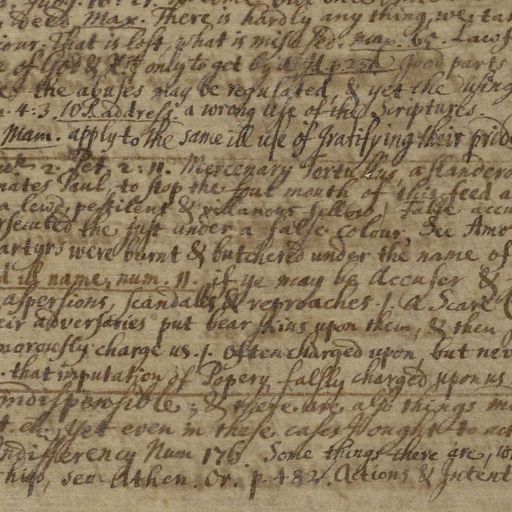 deed Max. There is hardly any thing we ta
iour, that is lost, what is misused. max. 65. Laws
only to get by it p 221 good parts
the abuses may be regulated, & yet the using
4:3 address a wrong use of the Scriptures
Mam. apply to the same ill use of Gratifying their pride
2 Pet. 2:11. Mercenary Tertullus, a slandero
nates Paul, to stop the foul mouth of this feed a
a lewd pestilent & villanous fellow, false accu
rsecuted the just under a false colour, See Amo
artyrs were burnt & butchered under the name of
ill name, num. 11. if ye may be Accuser &
aspersions, scandalls & reproaches. /. a Scare
eir adversaries put bear skins upon them, & then
morously charge us. /. often charged upon but nev
that imputation of Popery falsly charged upon us
indispensible, & there are also things
yet even in these cases ought to act
Indifferency Num 176. Some things there are,
ship, see Athen. Or. p. 482. Actions & Intent